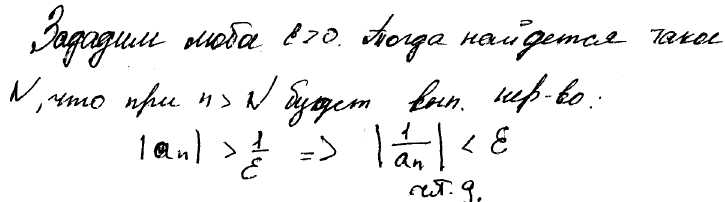 Зададим люба ε>0. Тогда найдется такое
N, что при n > N будет вып. нер-во:
|aₙ| > 1/ε => |1/aₙ| < ε
чт.д.